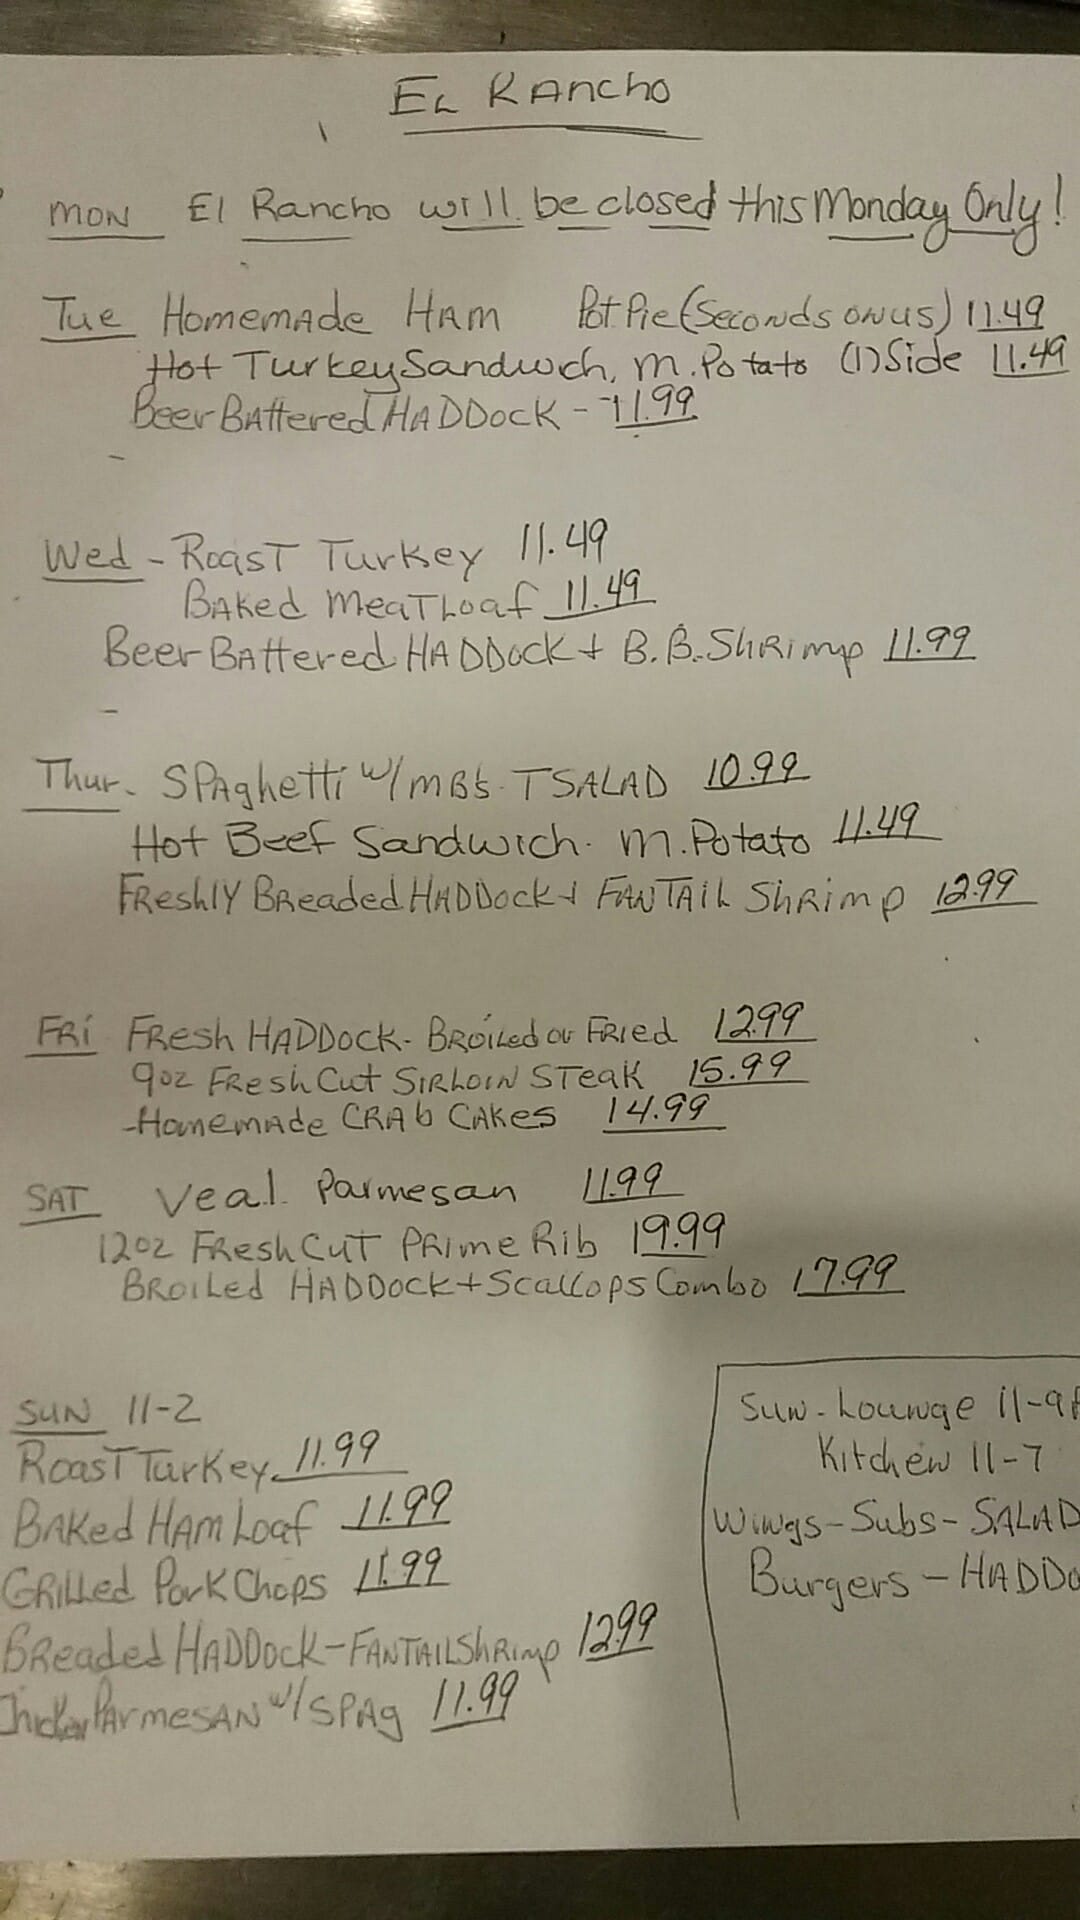 El Rancho
Mon El Rancho will be closed this Monday Only!
Tue Homemade Ham Pot Pie (Seconds on us) 11.49
Hot Turkey Sandwich, M. Potato (1) Side 11.49
Beer Battered Haddock - 11.99
Wed - Roast Turkey 11.49
Baked Meatloaf 11.49
Beer Battered Haddock + B.B. Shrimp 11.99
Thur. Spaghetti w/ MB's TSalad 10.99
Hot Beef Sandwich. M. Potato 11.49
Freshly Breaded Haddock + Fantail Shrimp 12.99
Fri Fresh Haddock - Broiled or Fried 12.99
9oz Fresh Cut Sirloin Steak 15.99
Homemade Crab Cakes 14.99
Sat Veal Parmesan 11.99
12oz Fresh Cut Prime Rib 19.99
Broiled Haddock + Scallops Combo 17.99
Sun 11-2
Roast Turkey 11.99
Baked Ham Loaf 11.99
Grilled Pork Chops 11.99
Breaded Haddock - Fantail Shrimp 12.99
Chicken Parmesan w/ Spag 11.99
Sun - Lounge 11-9
Kitchen 11-7
Wings - Subs - Salad
Burgers -